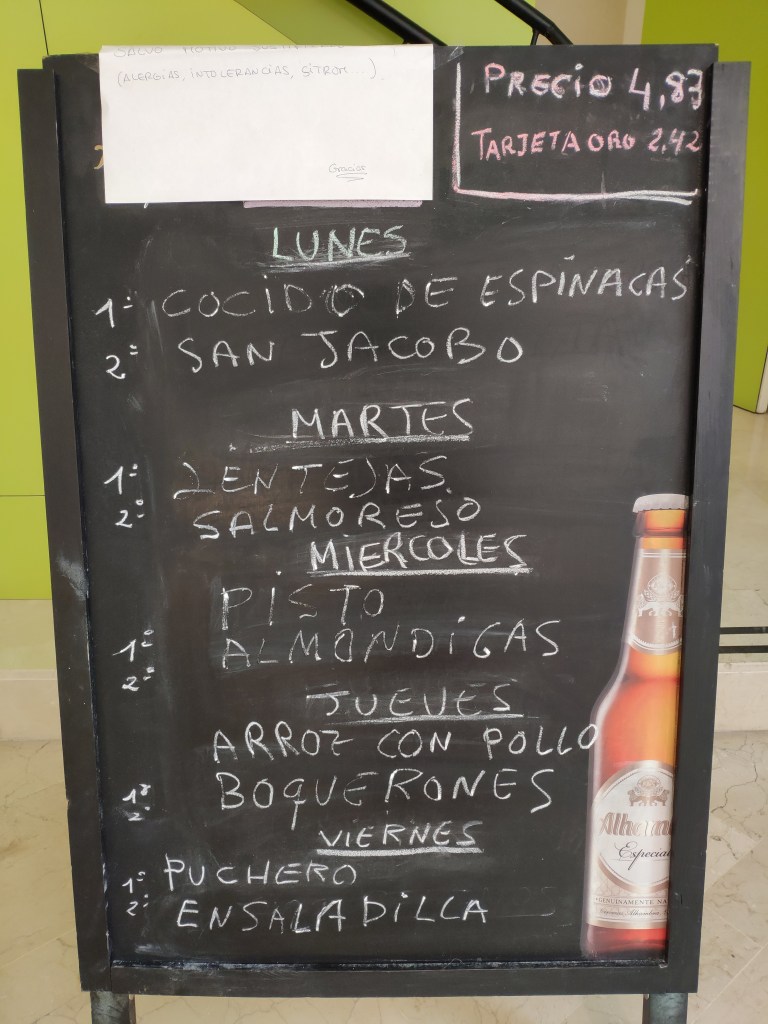 SALVO MOTIVO
(ALERGIAS, INTOLERANCIAS, SITROM...)
Gracias
PRECIO 4,83
TARJETA ORO 2,42
LUNES
1º COCIDO DE ESPINACAS
2º SAN JACOBO
MARTES
1º LENTEJAS
2º SALMOREJO
MIERCOLES
PISTO
1º ALMONDIGAS
2º
JUEVES
ARROZ CON POLLO
1º BOQUERONES
2º
VIERNES
1º PUCHERO
2º ENSALADILLA
Especial
GENUINAMENTE NA